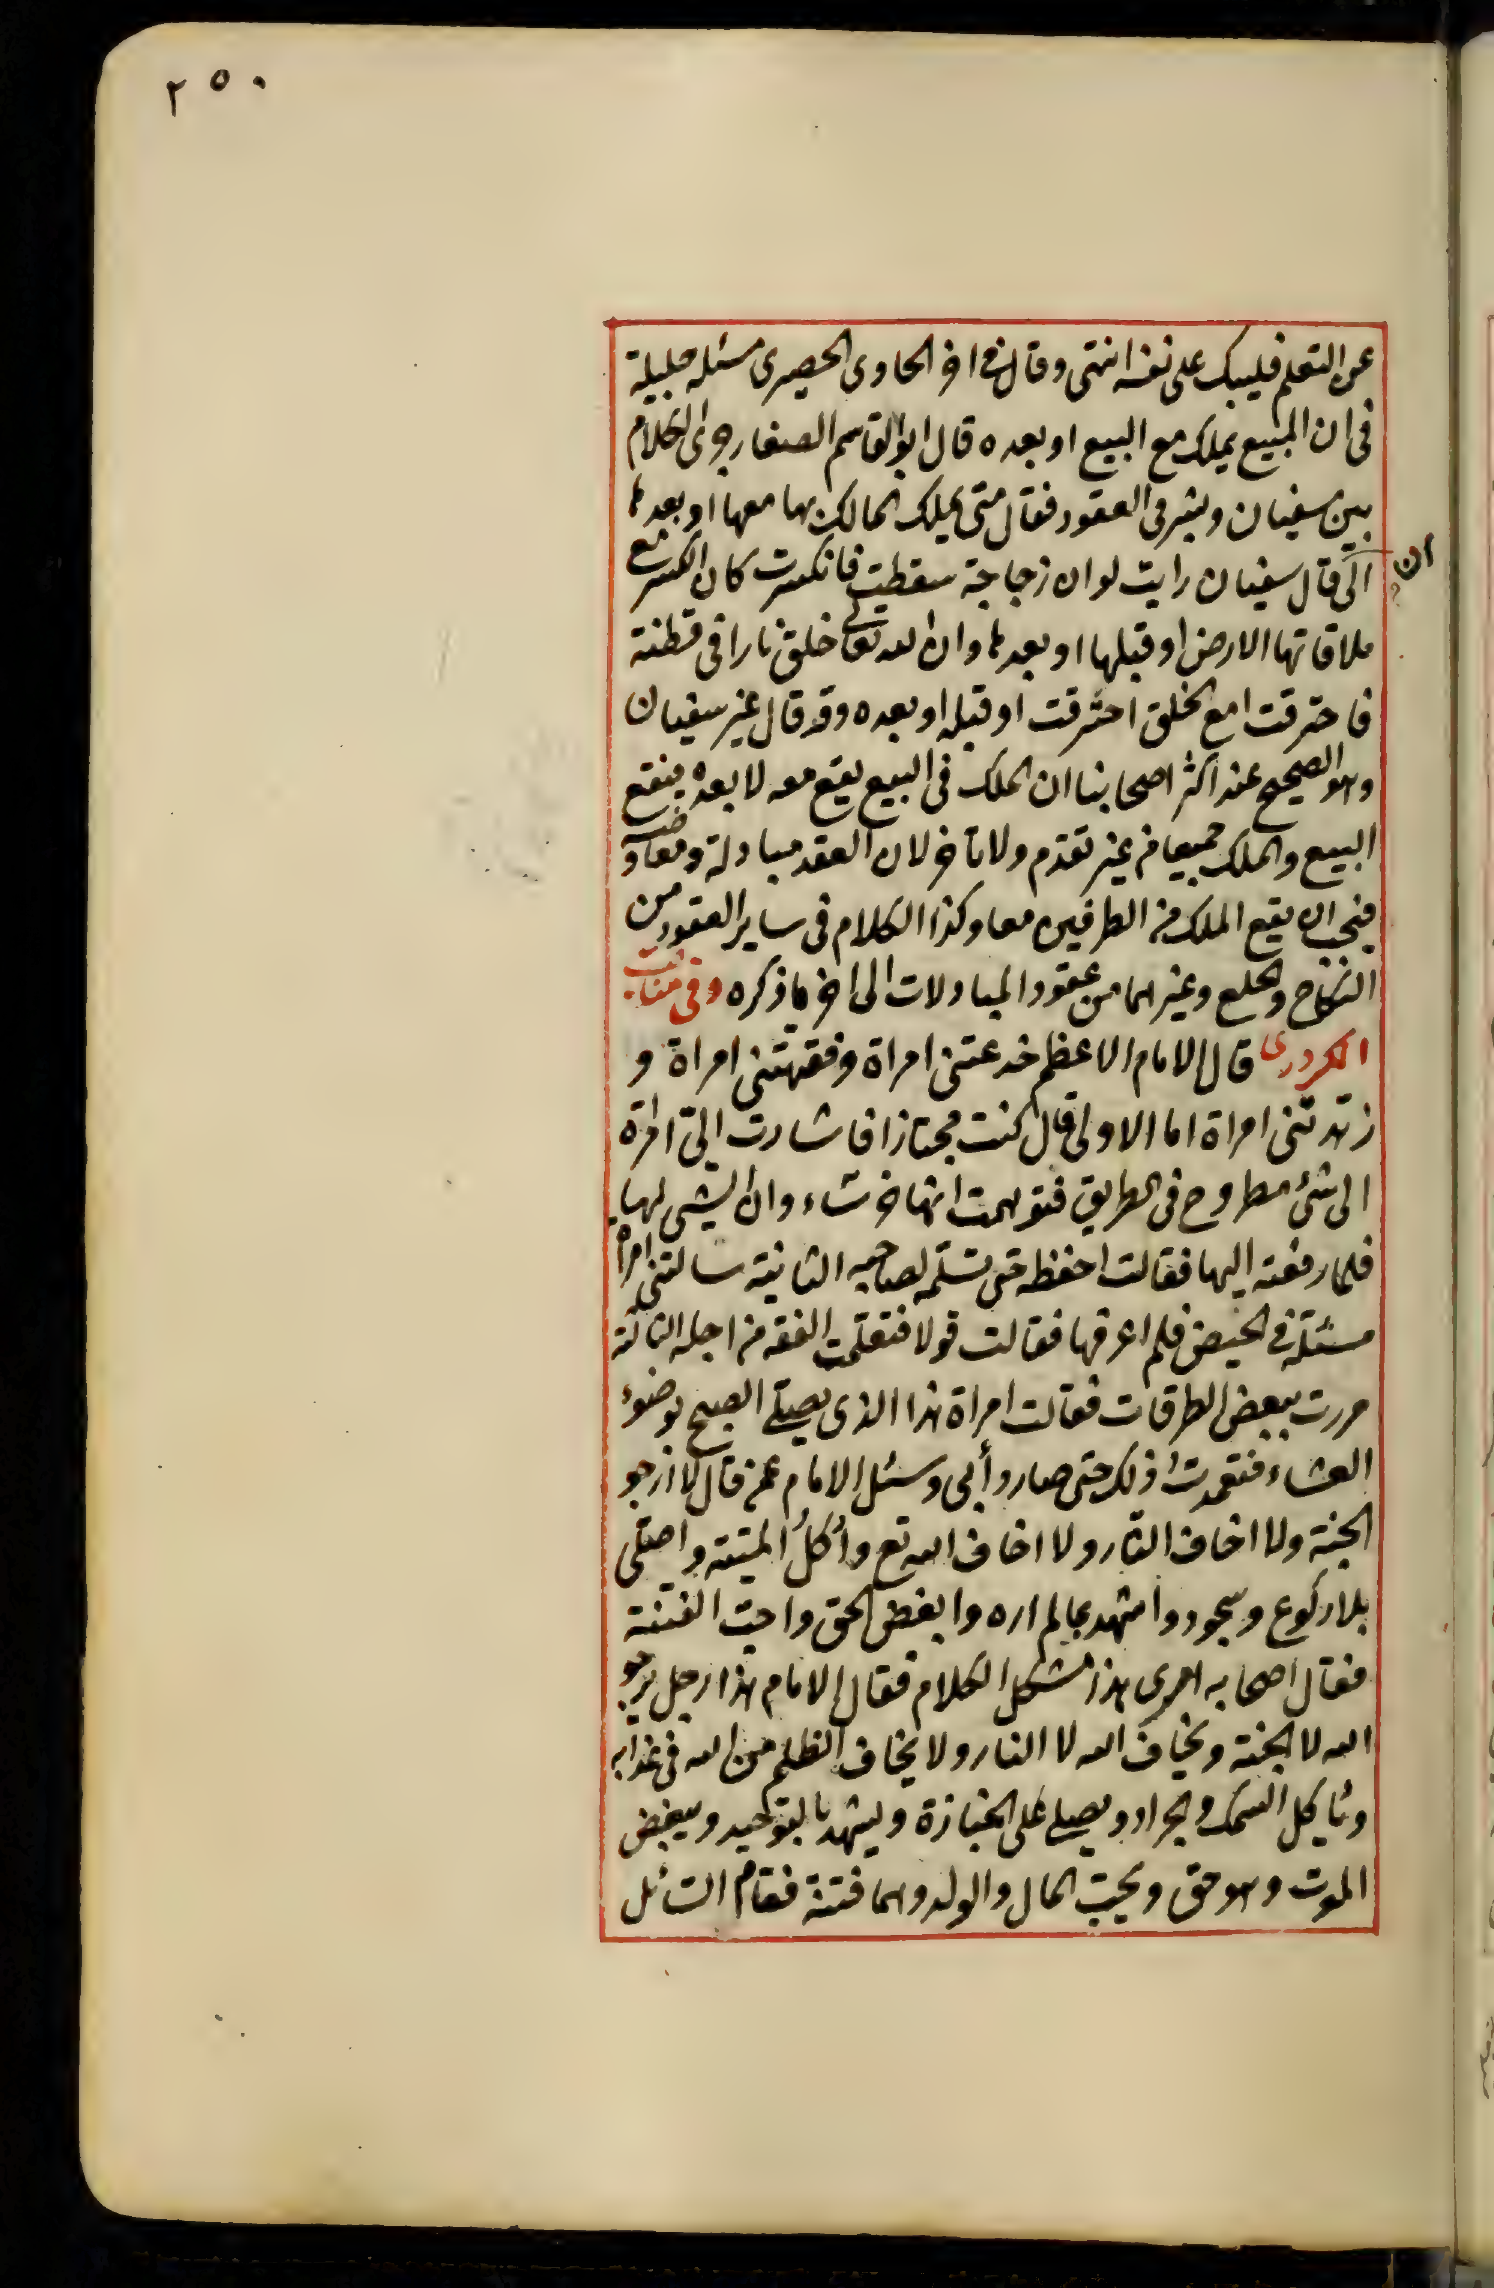 ٢٥٠
عن التعلم فليبك على نفسه انتهى وقال في اخر الحاوى الحصيرى مسئله جليلة
فى ان المبيع يملك مع البيع او بعده قال ابو القاسم الصفار جرى الكلام
بين سفيان وبشر فى العقود فقال متى يملك المالك بها معها او بعدها
ان
الى قال سفيان رايت لو ان زجاجة سقطت فانكسرت كان الكسر مع
ملاقاتها الارض او قبلها او بعدها وان الله تعالى خلق نارا فى قطنة
فاحترقت امع الخلق احترقت او قبله او بعده وقد قال غير سفيان
وهو الصحيح عند اكثر اصحابنا ان الملك فى البيع يقع معه لا بعده فيقع
البيع والملك جميعا من غير تقدم ولا تاخر لان العقد مبادلة ومعاوضة
فيجب ان يقع الملك من الطرفين معا وكذا الكلام فى ساير العقود من
النكاح والخلع وغيرهما من عقود المبادلات الى اخر ما ذكره وفى مناقب
الكردرى قال الامام الاعظم خدعتنى امراة وفقهتنى امراة و
زهدتنى امراة اما الاولى قال كنت مجتازا فاشارت الىّ امراة
الى شئ مطروح فى الطريق فتوهمت انها خرساء وان الشى لها
فلما رفعته اليها فقالت احفظه حتى تسلّمه لصاحبه الثانية سالتنى امراة
مسئلة في الحيض فلم اعرفها فقالت قولا فتعلمت الفقه من اجله الثالثة
مررت ببعض الطرقات فقالت امراة هذا الذى يصلى الصبح بوضوء
العشاء فتعمدت ذلك حتى صار دأبى وسئل الامام عمن قال لا ارجو
الجنة ولا اخاف النار ولا اخاف الله تع وأكلُ الميتة واصلى
بلا ركوع وسجود واشهد بما لم اره وابغض الحق واحبّ الفتنة
فقال اصحابه امرى هذا مشكل الكلام فقال الامام هذا رجل يرجو
الله لا الجنة ويخاف الله لا النار ولا يخاف الظلم من الله فى عذابه
وياكل السمك والجراد ويصلى على الجنازة ويشهد بالتوحيد ويبغض
الموت وهو حق ويحبّ المال والولد وهما فتنة فقام السائل